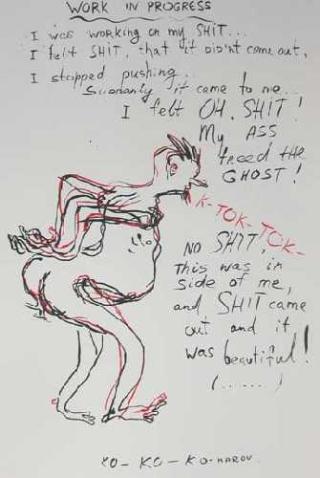 WORK IN PROGRESS
I was working on my SHIT...
I felt SHIT, that it didn't come out,
I stopped pushing.
Suddanly it came to me...
I felt OH, SHIT!
My ASS
freed the
GHOST!
K-TOK-TOK-
NO SHIT,
This was in
side of me,
and SHIT came
out and it
was beautiful!
(......)
KO-KO-KOMAROV